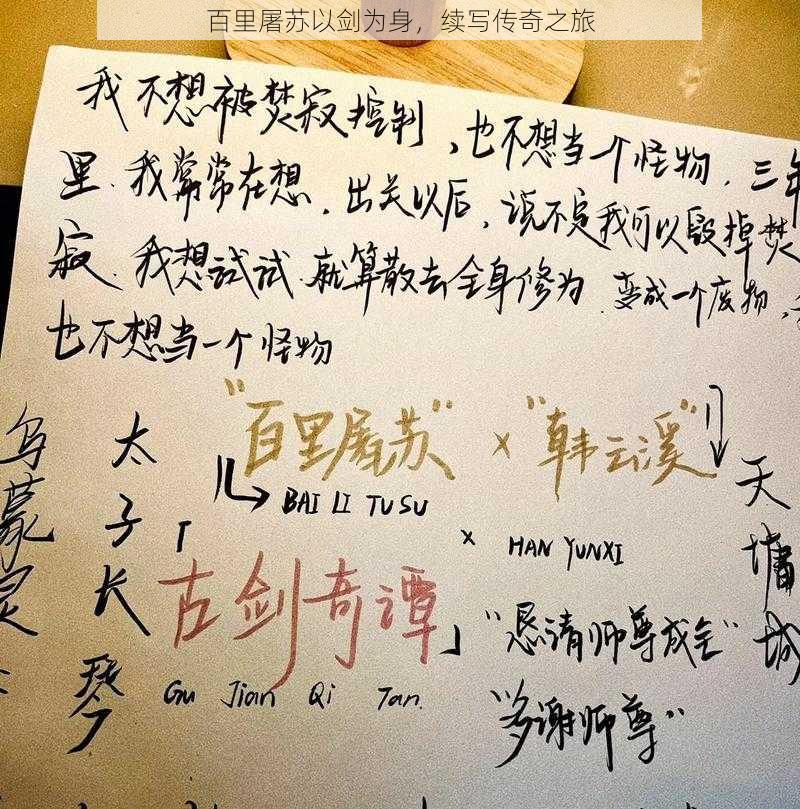 百里屠苏以剑为身，续写传奇之旅
我不想被焚寂控制，也不想当一个怪物．三年
里．我常常在想．出关以后，说不定我可以毁掉焚
寂．我想试试．就算散去全身修为．变成一个废物，
也不想当一个怪物
"百里屠苏"×"韩云溪"
BAI LI TUSU × HAN YUNXI
「古剑奇谭」
Gu Jian Qi Tan.
"恳请师尊成全"
"多谢师尊"
乌蒙灵
太子长琴
天墉城